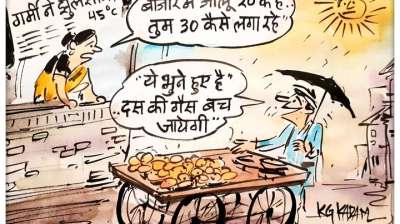 गर्मी ने झुलसा
45°c
बाजार में आलू 20 के है..
तुम 30 कैसे लगा रहे"
"ये भुने हुए है"
..दस की गैस बच
जायेगी"
KG KADAM